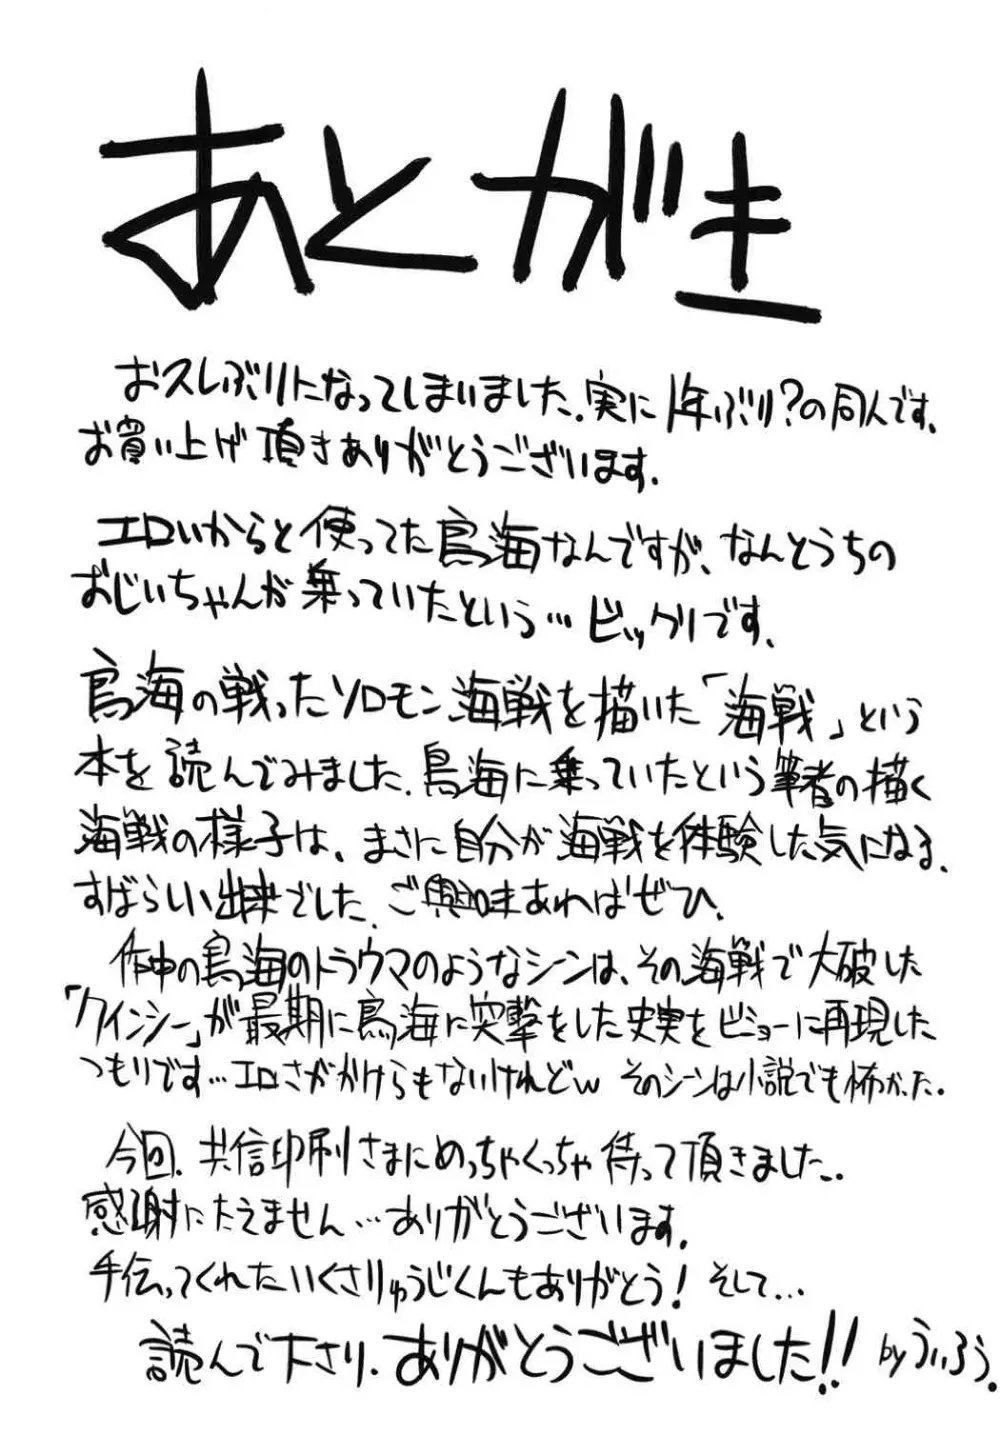 あとがき
お久しぶりになってしまいました。実に1年ぶり?の同人です。
お買い上げ頂きありがとうございます。
エロいからと使ってた鳥海なんですが、なんとうちの
おじいちゃんが乗っていたという…ビックリです。
鳥海の戦ったソロモン海戦を描いた「海戦」という
本を読んでみました。鳥海に乗っていたという筆者の描く
海戦の様子は、まさに自分が海戦を体験した気になる、
すばらしい出来でした。ご興味あればぜひ。
作中の鳥海のトラウマのようなシーンは、その海戦で大破した
「クインシー」が最期に鳥海に突撃をした史実をビミョーに再現した
つもりです…エロさがかけらもないけれどw そのシーンは小説でも怖かった。
今回、共信印刷さまにめっちゃくっちゃ待って頂きました。
感謝にたえません…ありがとうございます。
手伝ってくれたいくさりゅうじくんもありがとう! そして…
読んで下さり、ありがとうございました!! byういろう。